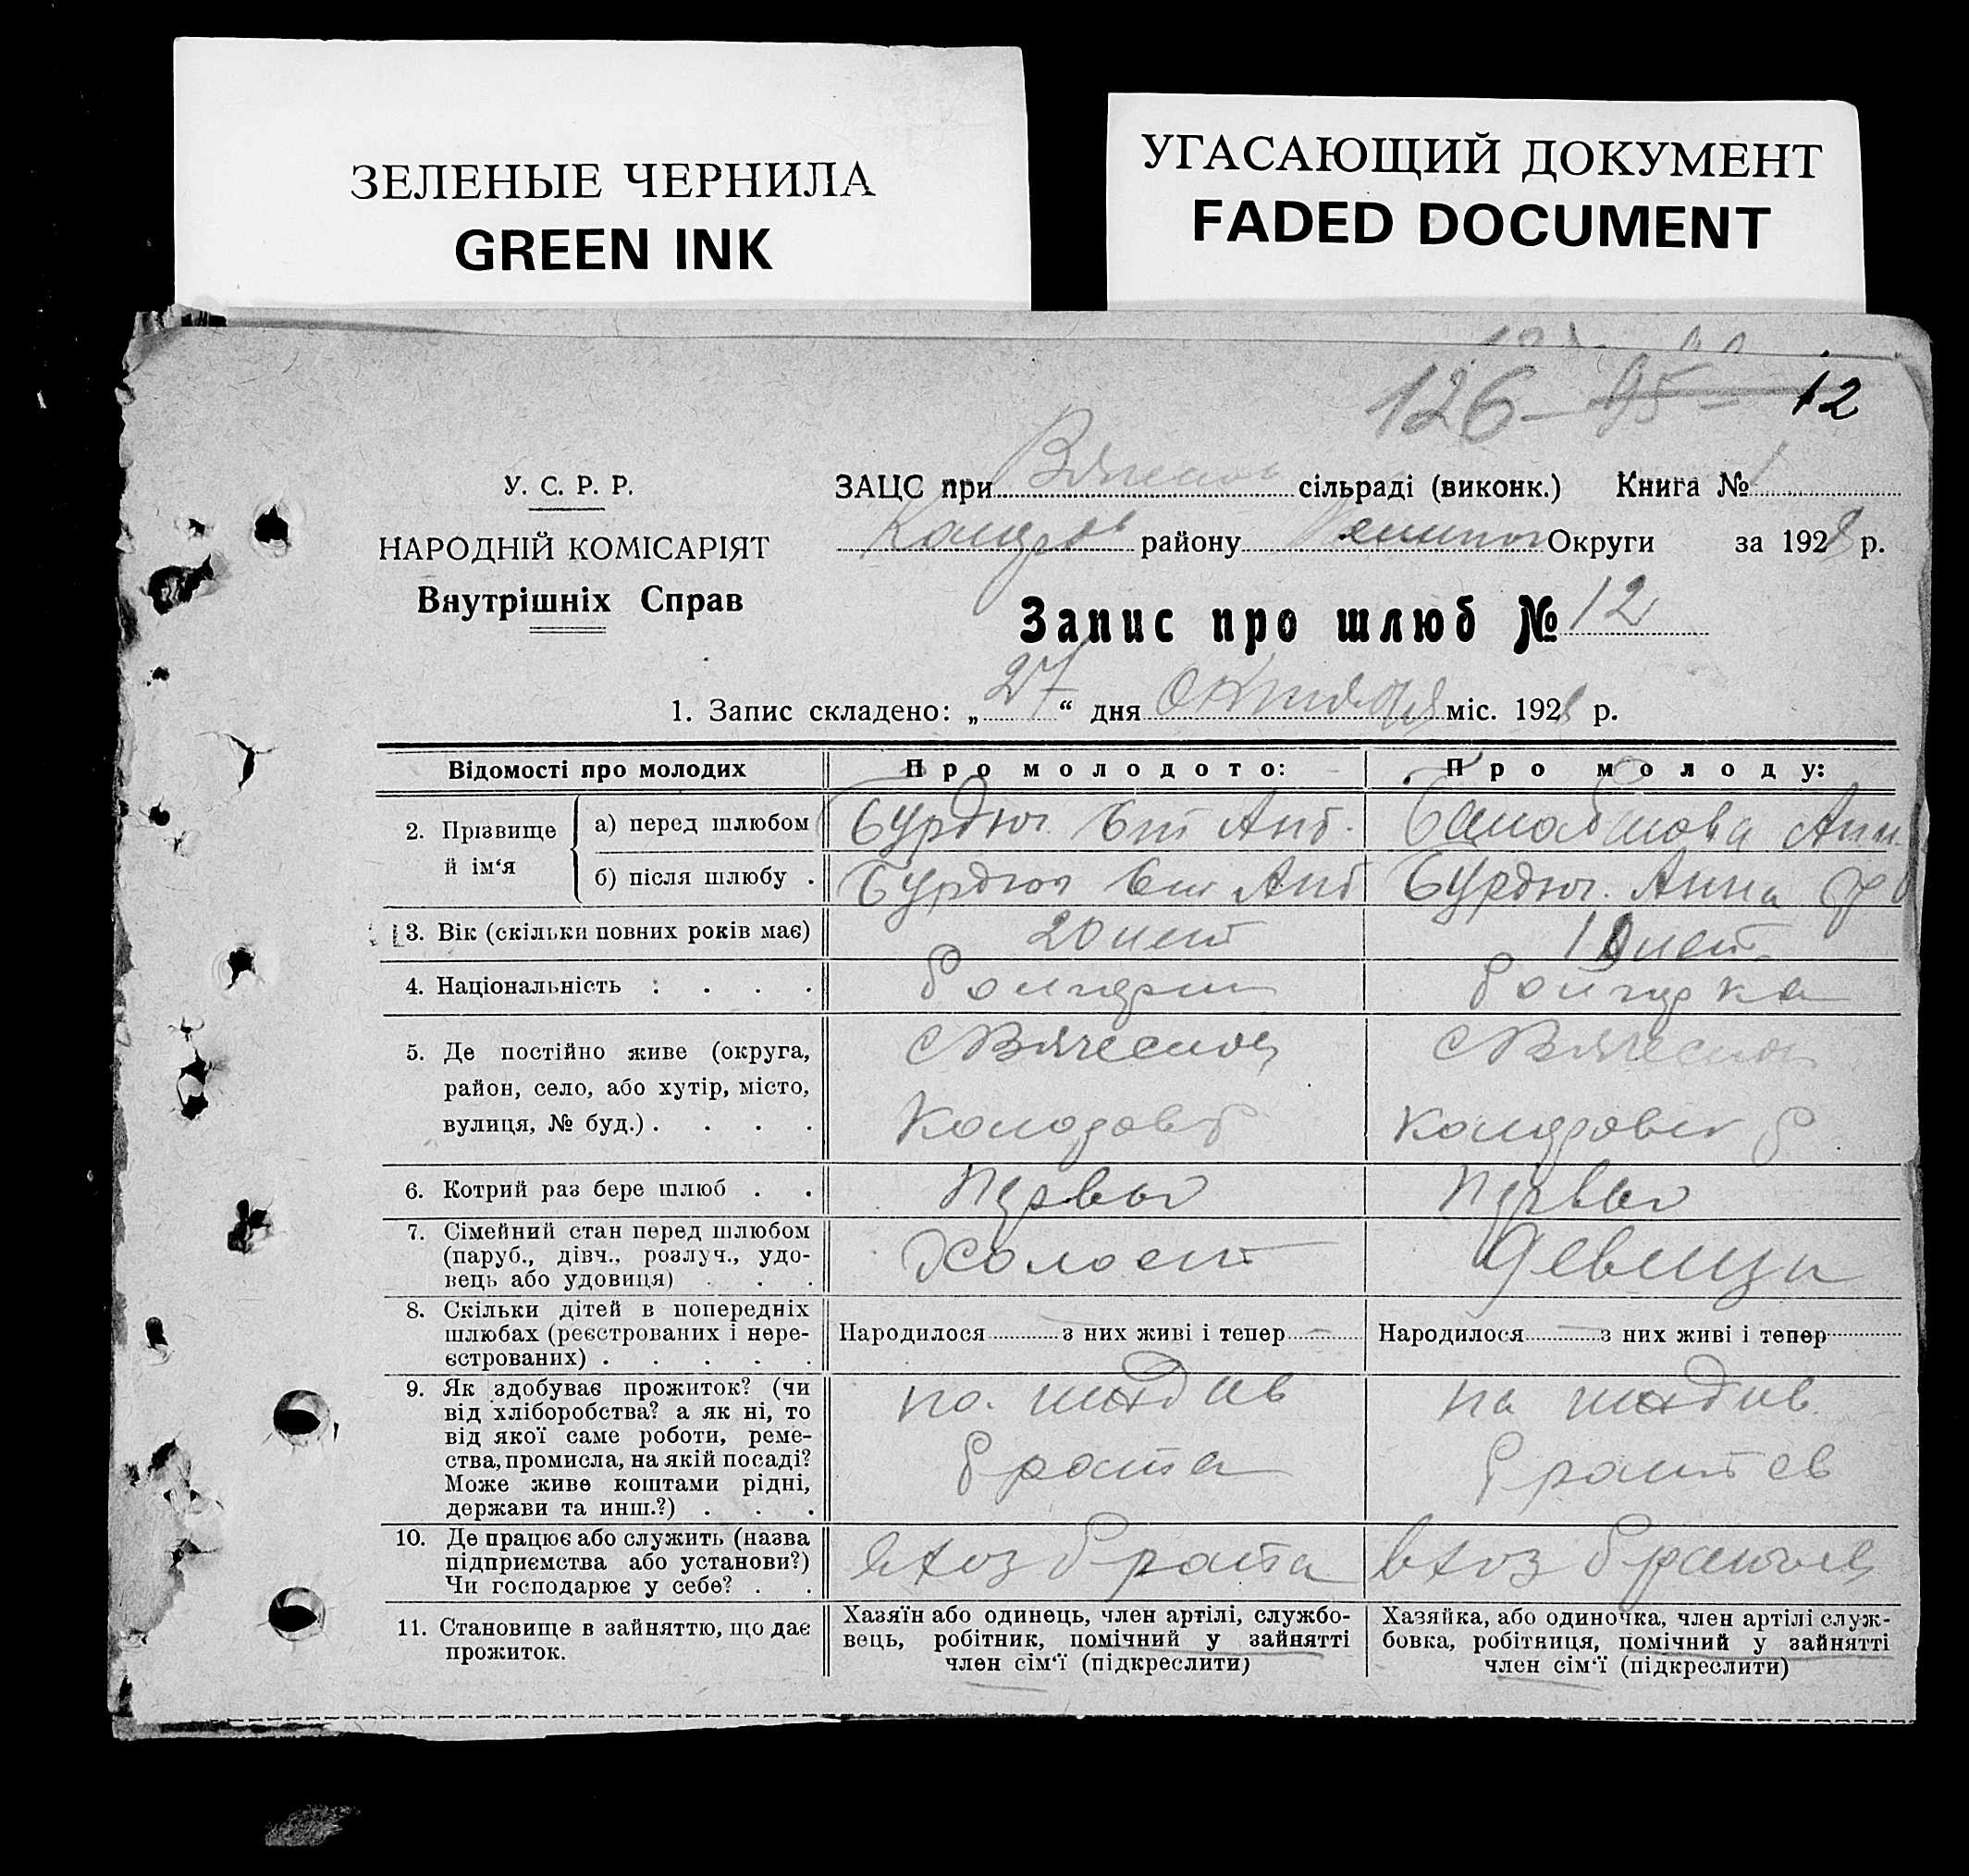 ЗЕЛЕНЫЕ ЧЕРНИЛА
GREEN INK
УГАСАЮЩИЙ ДОКУМЕНТ
FADED DOCUMENT
126 – 95 – 12
У. С. Р. Р.
НАРОДНІЙ КОМІСАРІЯТ
Внутрішніх Справ
ЗАЦС при сільраді (виконк.) Книга № 1
району Округи за 1928 р.
Запис про шлюб № 12
1. Запис складено: „27“ дня Октября міс. 1928 р.
Відомості про молодих Про молодого: Про молоду:
2. Прізвище й ім‘я
а) перед шлюбом Бурдюг Анна
б) після шлюбу . Бурдюг Бурдюг. Анна
3. Вік (скільки повних років має) 20 лет лет
4. Національність : . . . болгарин болгарка
5. Де постійно живе (округа,
район, село, або хутір, місто,
вулиця, № буд.) . . . .
6. Котрий раз бере шлюб . . первый первый
7. Сімейний стан перед шлюбом
(паруб., дівч., розлуч., удо-
вець або удовиця) . . . Холост Девица
8. Скільки дітей в попередніх
шлюбах (реєстрованих і нере-
єстрованих) . . . . .
Народилося з них живі і тепер
Народилося з них живі і тепер
9. Як здобуває прожиток? (чи
від хліборобства? а як ні, то
від якої саме роботи, реме-
ства, промисла, на якій посаді?
Може живе коштами рідні,
держави та инш.?) . . .
на иждив
брата
на иждив
братев
10. Де працює або служить (назва
підприємства або установи?)
Чи господарює у себе? . .
в хоз брата
в хоз
11. Становище в зайняттю, що дає
прожиток.
Хазяїн або одинець, член артілі, службо-
вець, робітник, помічний у зайнятті
член сім‘ї (підкреслити)
Хазяйка, або одиночка, член артілі служ-
бовка, робітниця, помічний у зайнятті
член сім‘ї (підкреслити)